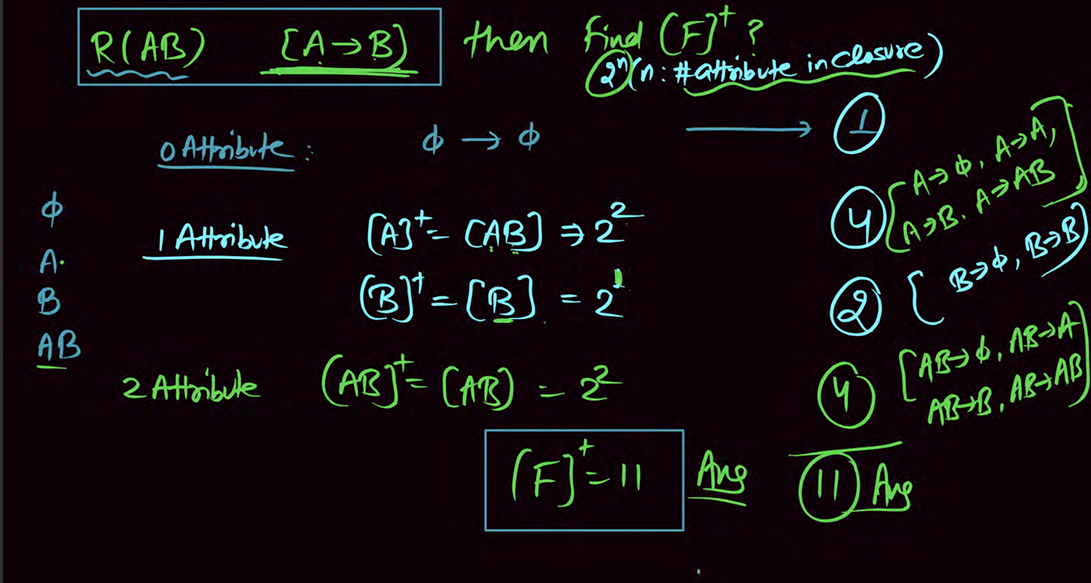 R(AB) [A→B] then Find (F)⁺?
2ⁿ (n: #attribute in closure)
0 Attribute: ϕ → ϕ → 1
ϕ
A.
B
AB
1 Attribute [A]⁺ = [AB] ⇒ 2² 4 [A→ϕ, A→A,
A→B. A→AB]
(B)⁺ = [B] = 2¹ 2 [B→ϕ, B→B]
2 Attribute (AB)⁺ = (AB) = 2² 4 [AB→ϕ, AB→A
AB→B, AB→AB]
[F]⁺ = 11 Ans 11 Ans